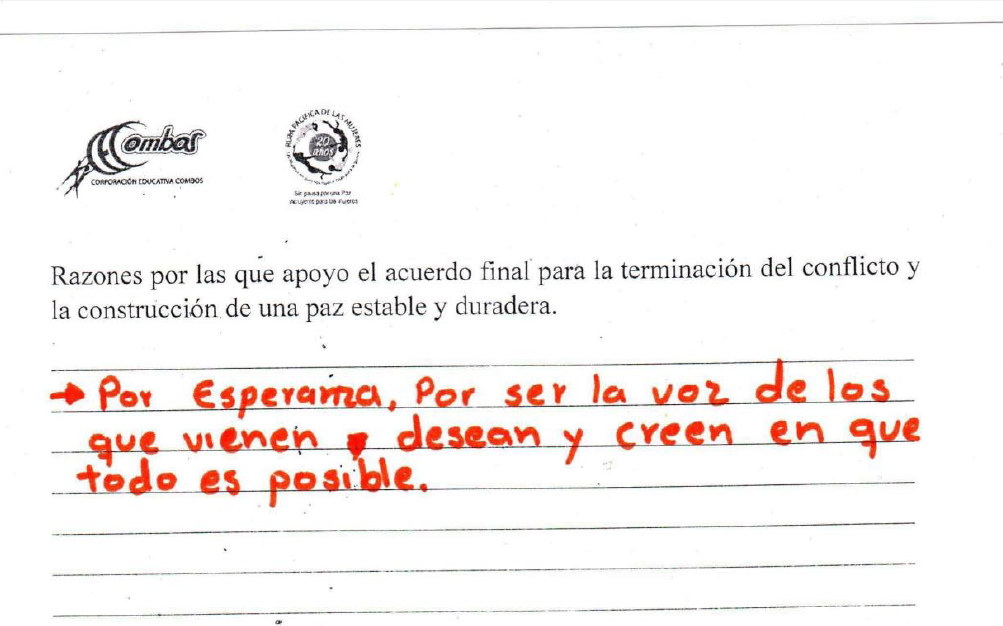 Combos
CORPORACIÓN EDUCATIVA COMBOS
RUTA PACÍFICA DE LAS MUJERES
20
años
Razones por las que apoyo el acuerdo final para la terminación del conflicto y
la construcción de una paz estable y duradera.
→ Por Esperanza, Por ser la voz de los
que vienen desean y creen en que
todo es posible.